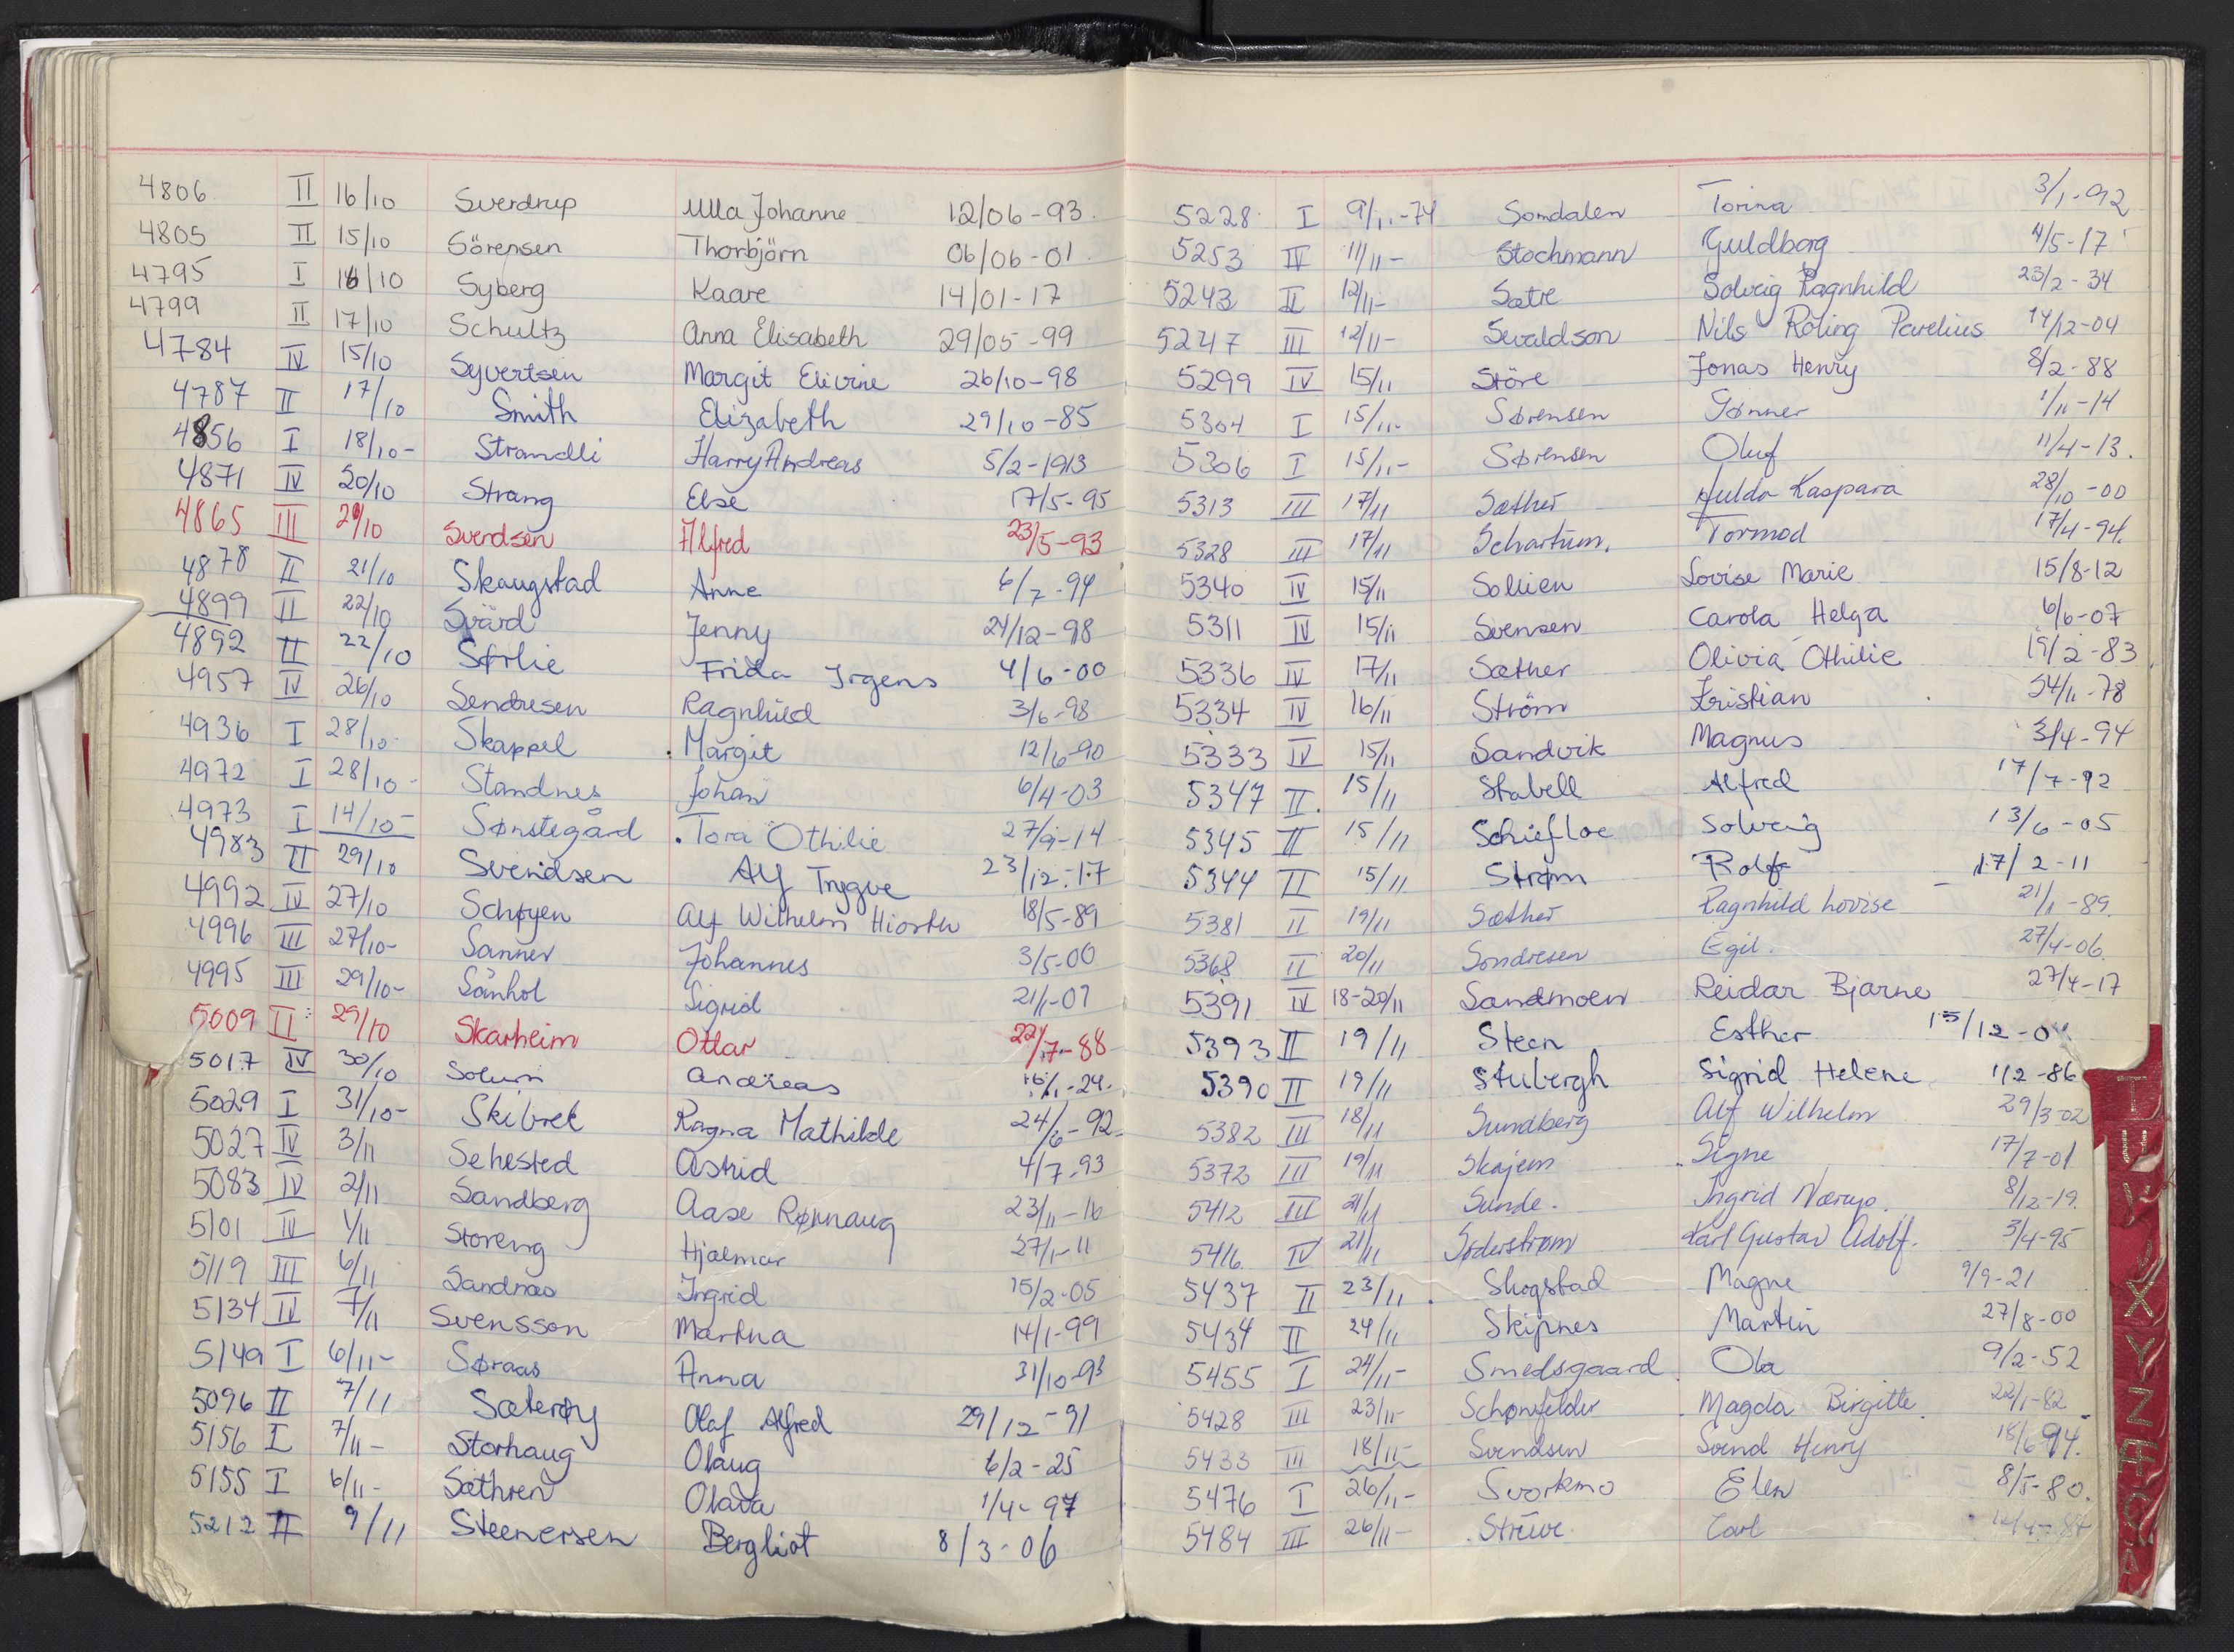 4806 II 16/10 Sverdrup Ulla Johanne 12/06-93.
4805 II 15/10 Sörensen Thorbjörn 06/06-01
4795 I 16/10 Syberg Kaare 14/01-17
4799 II 17/10 Schultz Anna Elisabeth 29/05-99
4784 IV 15/10 Syvertsen Margit Elivine 26/10-98
4787 II 17/10 Smith Elizabeth 29/10-85
4856 I 18/10- Strandli Harry Andreas 5/2-1913
4871 IV 20/10 Strang Else 17/5-95
4865 III 20/10 Sverdsen Alfred 23/5-93
4878 II 21/10 Skaugstad Anne 6/7-94
4899 II 22/10 Svärd Jenny 24/12-98
4892 II 22/10 Sørlie Frida Irgens 4/6-00
4957 IV 26/10 Sendresen Ragnhild 3/6-98
4936 I 28/10- Skappel Margit 12/6-90
4972 I 28/10- Standnes Johan 6/4-03
4973 I 14/10- Sønstegård Tora Othilie 27/9-14
4983 II 29/10 Svendsen Alf Trygve 23/12-17
4992 IV 27/10 Schøyen Alf Wilhelm Hiorth 18/5-89
4996 III 27/10- Sanner Johannes 3/5-00
4995 III 29/10- Sånhol Sigrid 21/1-07
5009 II 29/10 Skarheim Ottar 22/7-88
5017 IV 30/10 Solum Andreas 16/1-24.
5029 I 31/10- Skibrek Ragna Mathilde 24/6-92
5027 IV 3/11 Sehested Astrid 4/7-93
5083 IV 2/11 Sandberg Aase Rønnaug 23/11-16
5101 IV 1/11 Storeng Hjalmar 27/1-11
5119 III 6/11 Sandnæs Ingrid 15/2-05
5134 IV 7/11 Svensson Martna 14/1-99
5149 I 6/11- Søraas Anna 31/10-93
5096 II 7/11 Sæterøy Olaf Alfred 29/12-91
5156 I 7/11- Storhaug Olaug 6/2-25
5155 I 6/11- Sæthren Olava 1/4-97
5212 II 9/11 Steenersen Bergliot 8/3-06
5228 I 9/11-74 Somdalen Torina 3/1-92
5253 IV 11/11- Stochmann Guldborg 4/5-17
5243 II 12/11- Sætre Solveig Ragnhild 23/2-34
5247 III 12/11- Sevaldson Nils Röling Parelius 14/12-04
5299 IV 15/11 Störe Jonas Henry 8/2-88
5304 I 15/11- Sørensen Gønner 1/11-14
5306 I 15/11- Sørensen Oluf 11/4-13.
5313 III 17/11 Sæther Hulda Kaspara 28/10-00
5328 III 17/11 Schartum. Tormod 17/4-94.
5340 IV 15/11 Sollien Lovise Marie 15/8-12
5311 IV 15/11 Svensen Carola Helga 6/6-07
5336 IV 17/11 Sæther Olivia Othilie 19/2-83
5334 IV 16/11 Ström Kristian 4/11-78
5333 IV 15/11 Sandvik Magnus 3/4-94
5347 II. 15/11 Stabell Alfred 17/7-92
5345 II 15/11 Schiefloe Solveig 13/6-05
5344 II 15/11 Strøm Rolf 17/2-11
5381 II 19/11 Sæther Ragnhild Lovise 21/1-89.
5368 II 20/11 Sondresen Egil. 27/4-06.
5391 IV 18-20/11 Sandmoen Reidar Bjarne 27/4-17
5393 II 19/11 Steen Esther 15/12-0
5390 II 19/11 Stubergh Sigrid Helene 1/2-86
5382 III 18/11 Sundberg Alf Wilhelm 29/3-02
5372 III 19/11 Skajem Signe 17/7-01
5412 III 21/11 Sunde. Ingrid Nærup. 8/12-19.
5416 IV 21/11 Söderstrøm Karl Gustav Adolf. 3/4-95
5437 II 23/11. Skogstad Magne 9/9-21
5434 II 24/11 Skipnes Martin 27/8-00
5455 I 24/11- Smedsgaard Ola 9/2-52
5428 III 23/11- Schønfelder Magda Birgitte 22/1-82
5433 III 18/11- Svendsen Svend Henry 18/6 94.
5476 I 26/11- Svorkmo Elen 8/5-80.
5484 III 26/11- Strüve Carl
T
U
V
X
Y
Z
Æ
Ø
Å